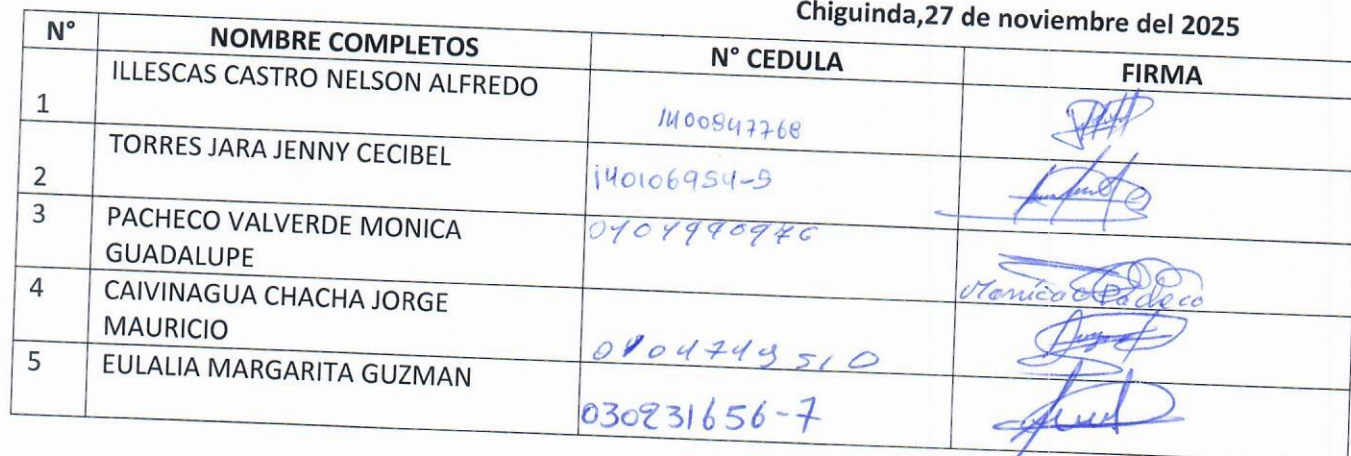 Chiguinda,27 de noviembre del 2025
N° NOMBRE COMPLETOS N° CEDULA FIRMA
1 ILLESCAS CASTRO NELSON ALFREDO 1400847768
2 TORRES JARA JENNY CECIBEL 140106954-9
3 PACHECO VALVERDE MONICA
GUADALUPE
Monica Pacheco
4 CAIVINAGUA CHACHA JORGE
MAURICIO
0104749510
5 EULALIA MARGARITA GUZMAN
030231656-7